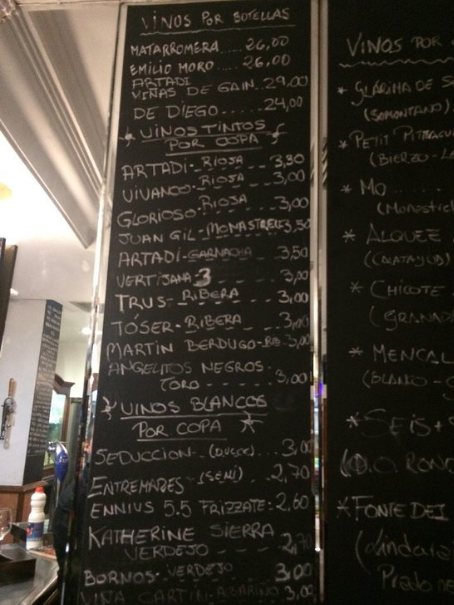 VINOS POR BOTELLAS
MATARROMERA....26,00
EMILIO MORO...26,00
ARTADI
VIÑAS DE GAIN..29,00
DE DIEGO....24,00
VINOS TINTOS
POR COPA
ARTADI-RIOJA---3,80
VIVANCO-RIOJA---3,00
GLORIOSO-RIOJA 3,00
JUAN GIL-MONASTRELL 3,50
ARTADI-GARNACHA 3,50
VERTIJANA 3 3,00
TRUS-RIBERA 3,00
TÓSER-RIBERA 3,00
MARTIN BERDUGO-RIB-3,00
ANGELITOS NEGROS-
TORO 3,00
VINOS BLANCOS
POR COPA
SEDUCCION-(DULCE) 3,00
ENTREMARES-(SEMI) 2,70
ENNIUS 5.5 FRIZZATE: 2,60
KATHERINE SIERRA
VERDEJO 2,70
BORNOS-VERDEJO 3,00
VIÑA CARTIN-ALBARIÑO 3,00
VINOS POR
* GLÁRIMA DE S
(SOMONTANO)
* PETIT
(BIERZO-L
* MO
(MONASTRE
* ALQUEZ
(CALATAYUD)
* CHICOTE
(GRANAD
* MENCAL
(BLANCO-
* SEIS+
(D.O. ROND
* FONTE DEI
(Lindara
Prado ne